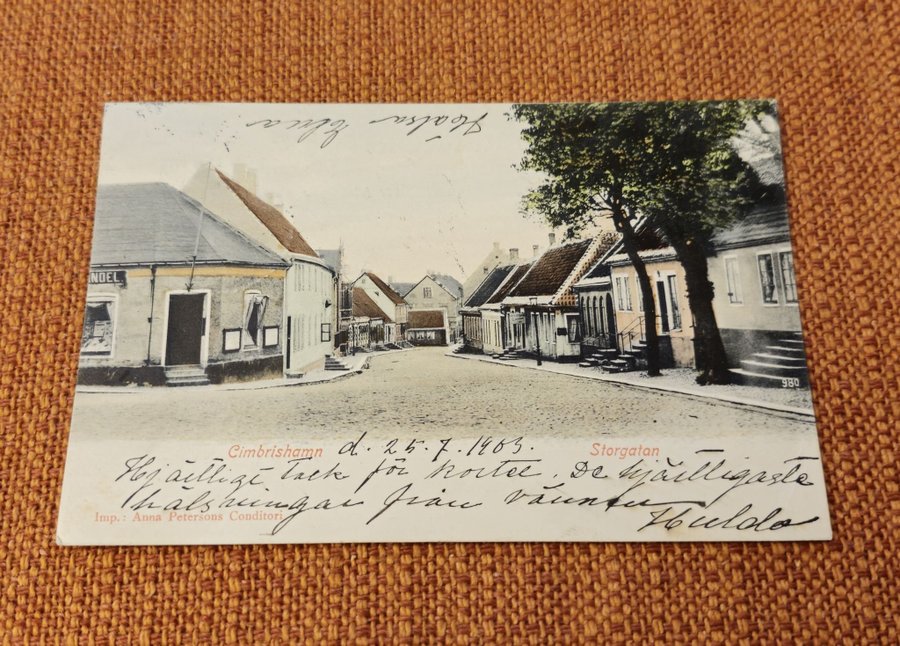 Hälsa Elma
NDEL
980
Cimbrishamn d. 25.7.1903. Storgatan
Hjärtligt tack för kortet. De hjärtligaste
hälsningar från vännen
Imp.: Anna Petersons Conditori Hulda